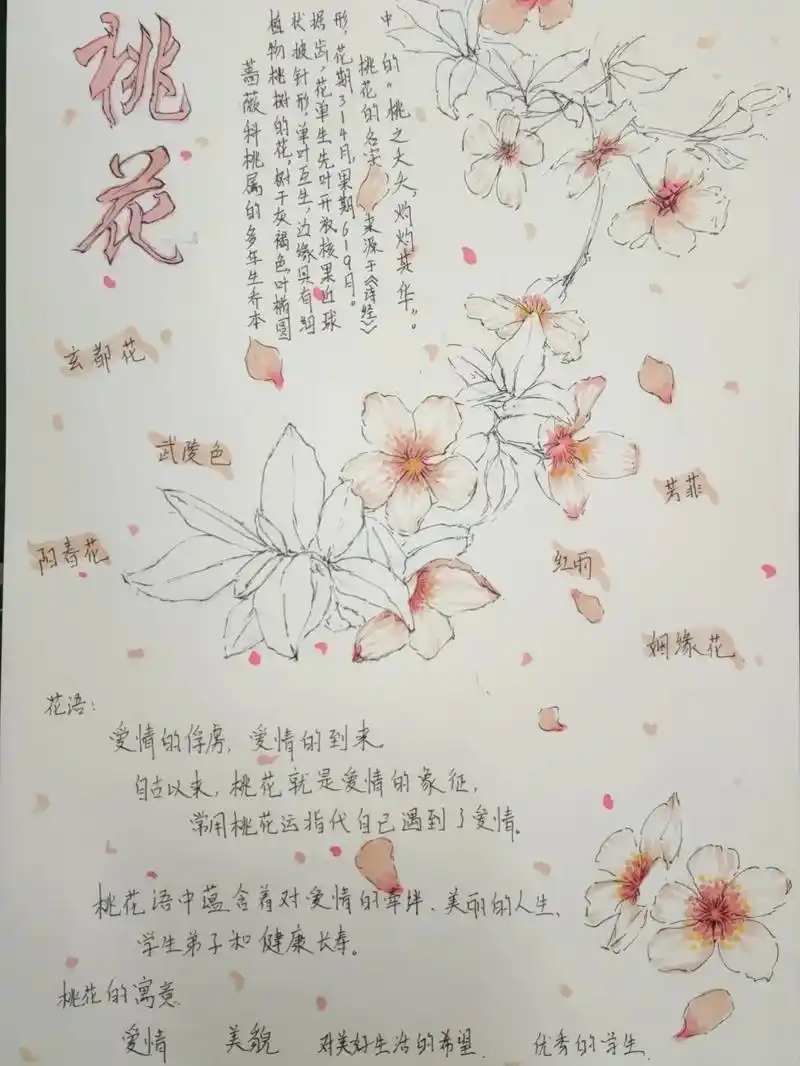 桃花
蔷薇科桃属的多年生乔本
植物桃树的花,树干灰褐色,叶椭圆
状披针形,单叶互生,边缘具有细
据齿,花单生先叶开放核果近球
形,花期3|4月,果期6|9月。
桃花的名字,来源于《诗经》
中的“桃之夭夭,灼灼其华”。
玄都花
武陵色
阳春花
芳菲
红雨
姻缘花
花语:
爱情的俘虏,爱情的到来
自古以来,桃花就是爱情的象征,
常用桃花运指代自己遇到了爱情。
桃花语中蕴含着对爱情的牵绊、美丽的人生、
学生弟子和健康长寿。
桃花的寓意
爱情 美貌 对美好生活的希望 优秀的学生